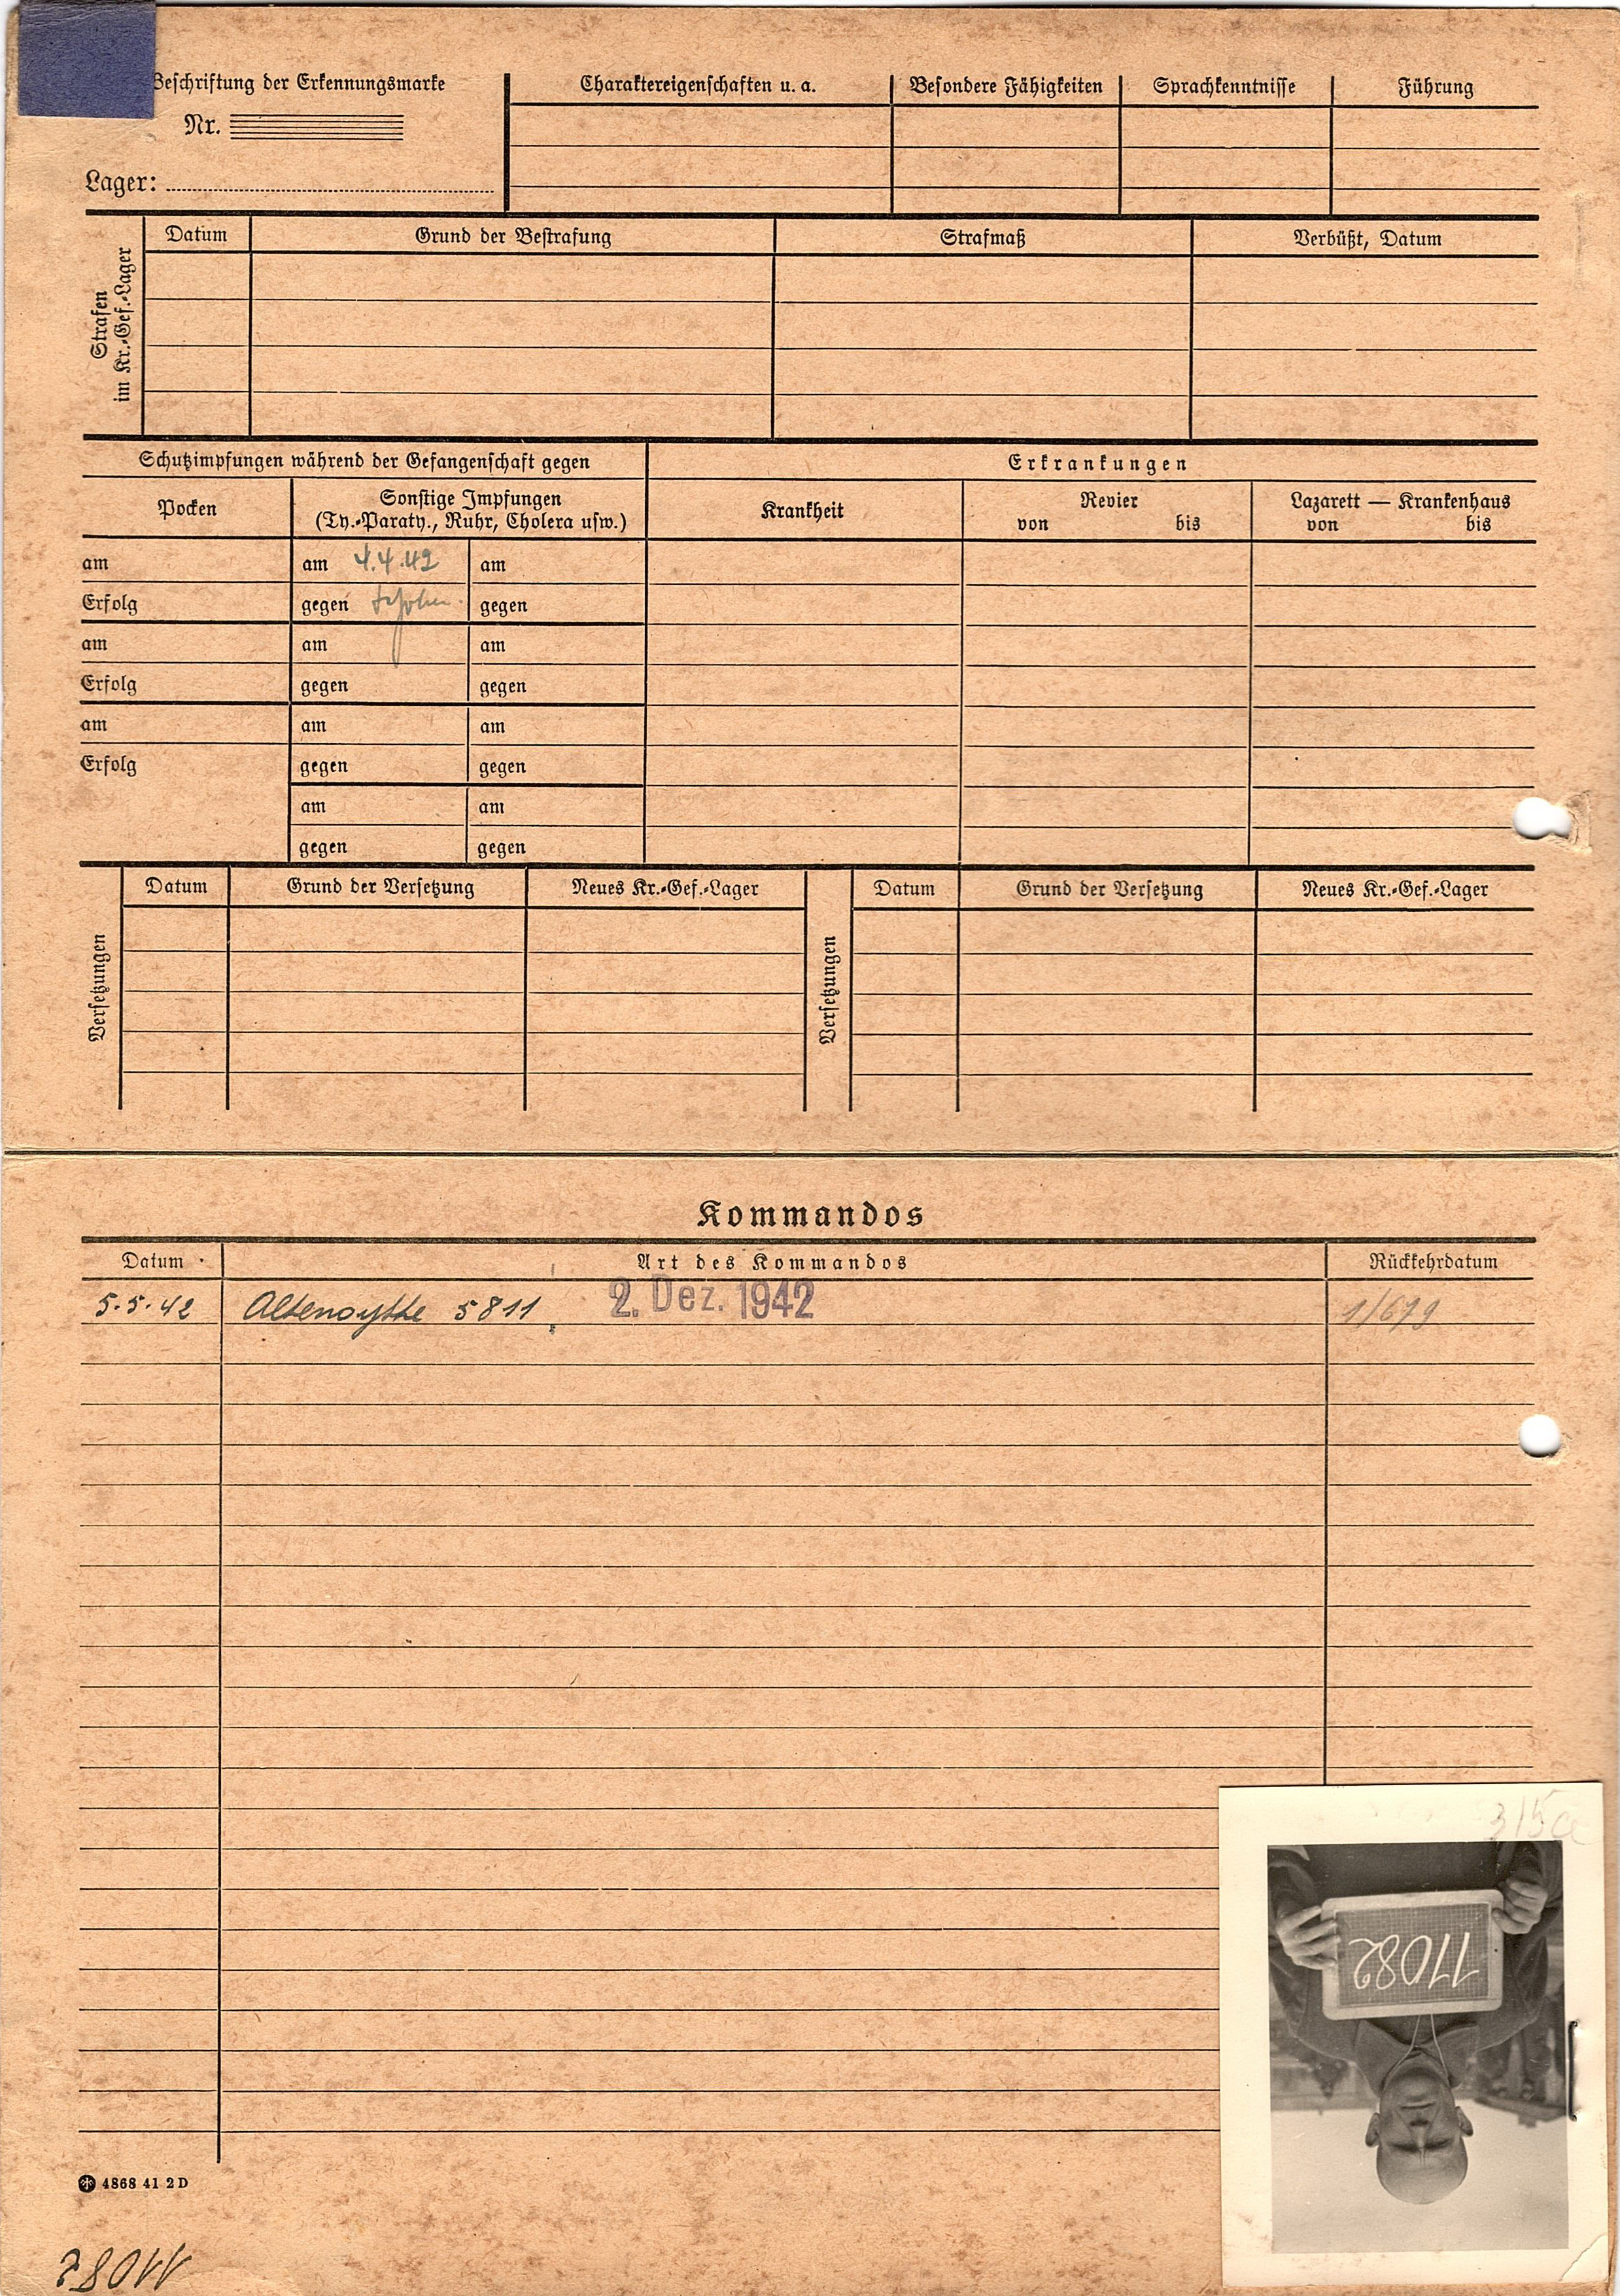 Beschriftung der Erkennungsmarke
Nr.
Lager:
Charaktereigenschaften u. a.
Besondere Fähigkeiten
Sprachkenntnisse
Führung
Strafen
im Kr.-Gef.-Lager
Datum
Grund der Bestrafung
Strafmaß
Verbüßt, Datum
Schutzimpfungen während der Gefangenschaft gegen
Erkrankungen
Pocken
Sonstige Impfungen
(Ty.-Paraty., Ruhr, Cholera usw.)
Krankheit
Revier
von bis
Lazarett — Krankenhaus
von bis
am am 4.4.42 am
Erfolg gegen gegen
am am am
Erfolg gegen gegen
am am am
Erfolg gegen gegen
am am
gegen gegen
Versetzungen
Datum Grund der Versetzung Neues Kr.-Gef.-Lager
Versetzungen
Datum Grund der Versetzung Neues Kr.-Gef.-Lager
Kommandos
Datum Art des Kommandos Rückkehrdatum
5.5.42 Altenoythe 5811 2. Dez. 1942 1/679
3/5a
11082
4868 41 2D
11082